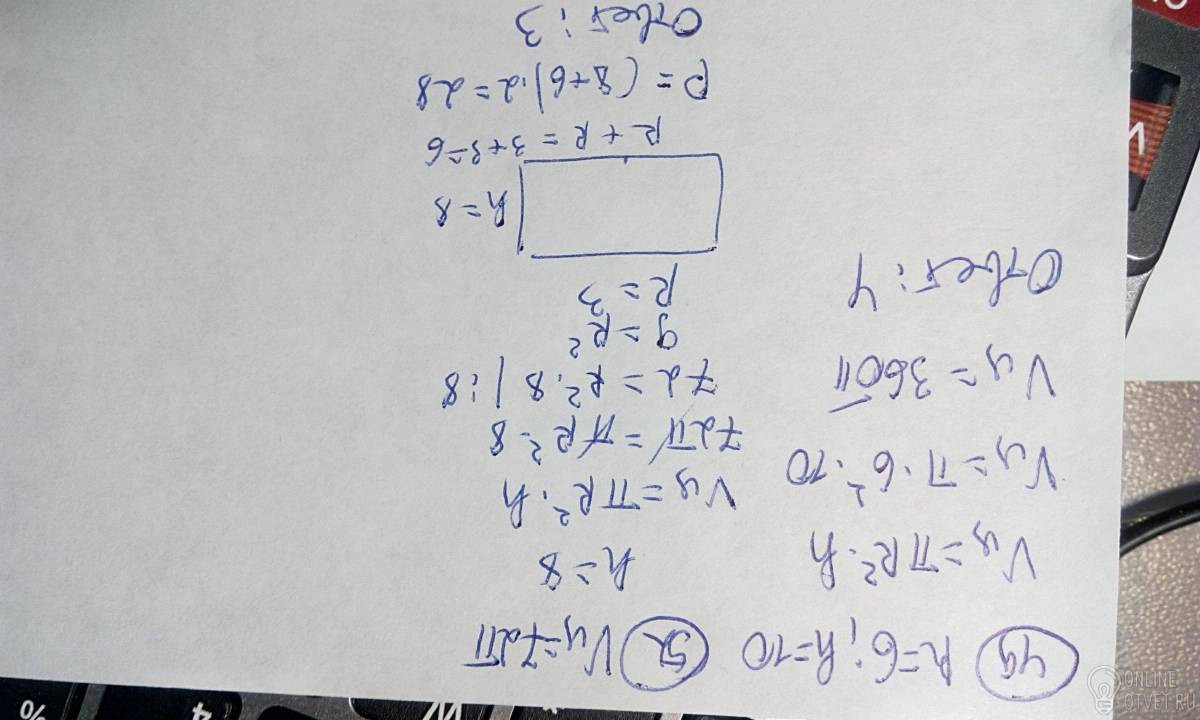 49 R=6; h=10
Vц = πR²·h
Vц = π·6²·10
Vц = 360π
Ответ: 4
52 Vц=72π
h=8
Vц = πR²·h
72π = πR²·8
72 = R²·8 |:8
9 = R²
R = 3
h = 8
R + R = 3+3=6
P = (8+6)·2 = 28
Ответ: 3
ONLINE
OTVET.RU
%
4
W